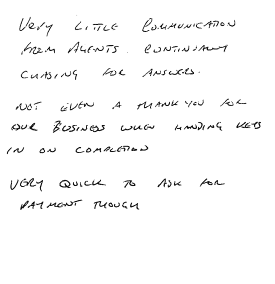 VERY LITTLE COMMUNICATION
FROM AGENTS. CONTINUALLY
CHASING FOR ANSWERS.
NOT EVEN A THANK YOU FOR
OUR BUSINESS WHEN HANDING KEYS
IN ON COMPLETION
VERY QUICK TO ASK FOR
PAYMENT THOUGH